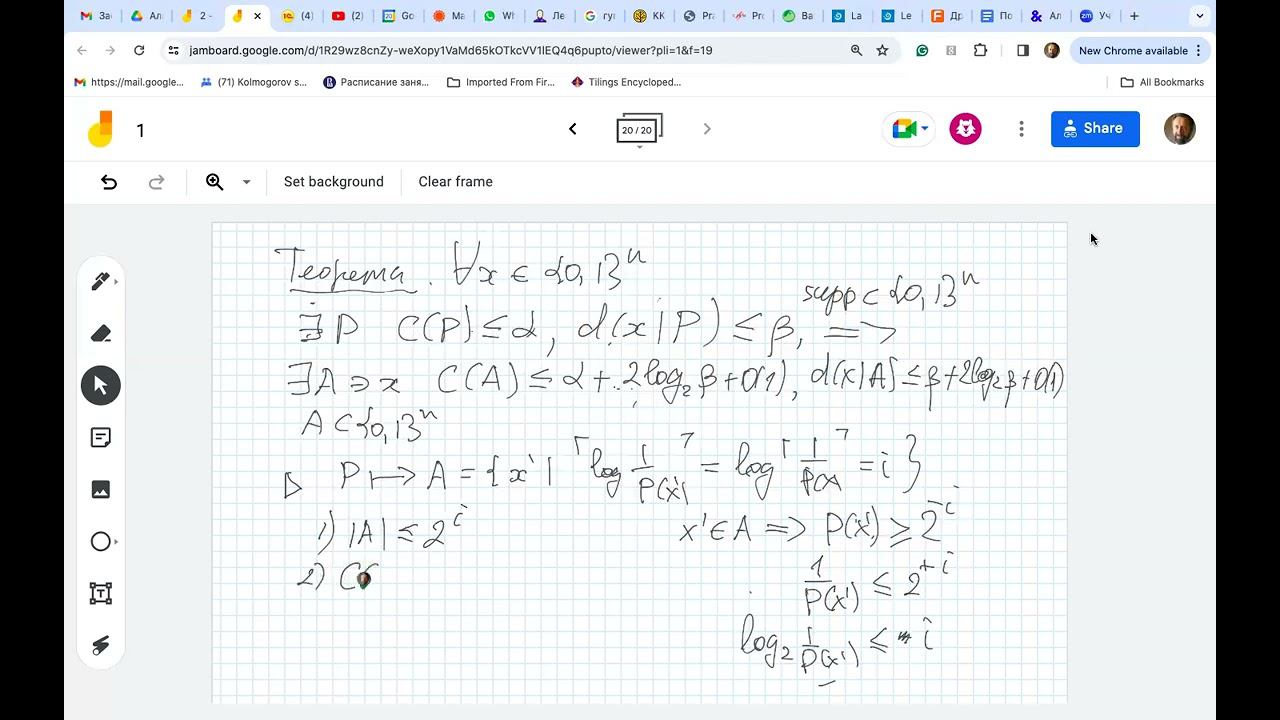 За
Ал
2 -
(4)
(2)
Go
Ma
(1
Ле
гру
КК
Pra
Pro
Ва
La
Le
Др
По
Ал
Уч
jamboard.google.com/d/1R29wz8cnZy-weXopy1VaMd65kO1kcVV1IEQ4q6pupto/viewer?pli=1&f=19
New Chrome available
https://mail.google...
(71) Kolmogorov s...
Расписание заня...
Imported From Fir...
Tilings Encycloped...
All Bookmarks
1
20 / 20
Share
Set background
Clear frame
Теорема. ∀x ∈ {0,1}ⁿ
supp ⊂ {0,1}ⁿ
∃P C(P) ≤ α, d(x|P) ≤ β, =>
∃A ∋ x C(A) ≤ α + 2log₂β + O(1), d(x|A) ≤ β + 2log₂β + O(1)
A ⊂ {0,1}ⁿ
▷ P ↦ A = {x' | ⌈log 1/P(x')⌉ = log⌈1/P(x)⌉ = i}
1) |A| ≤ 2^i
x' ∈ A => P(x') ≥ 2^-i
2) C(
1/P(x') ≤ 2^+i
log₂ 1/P(x') ≤ i